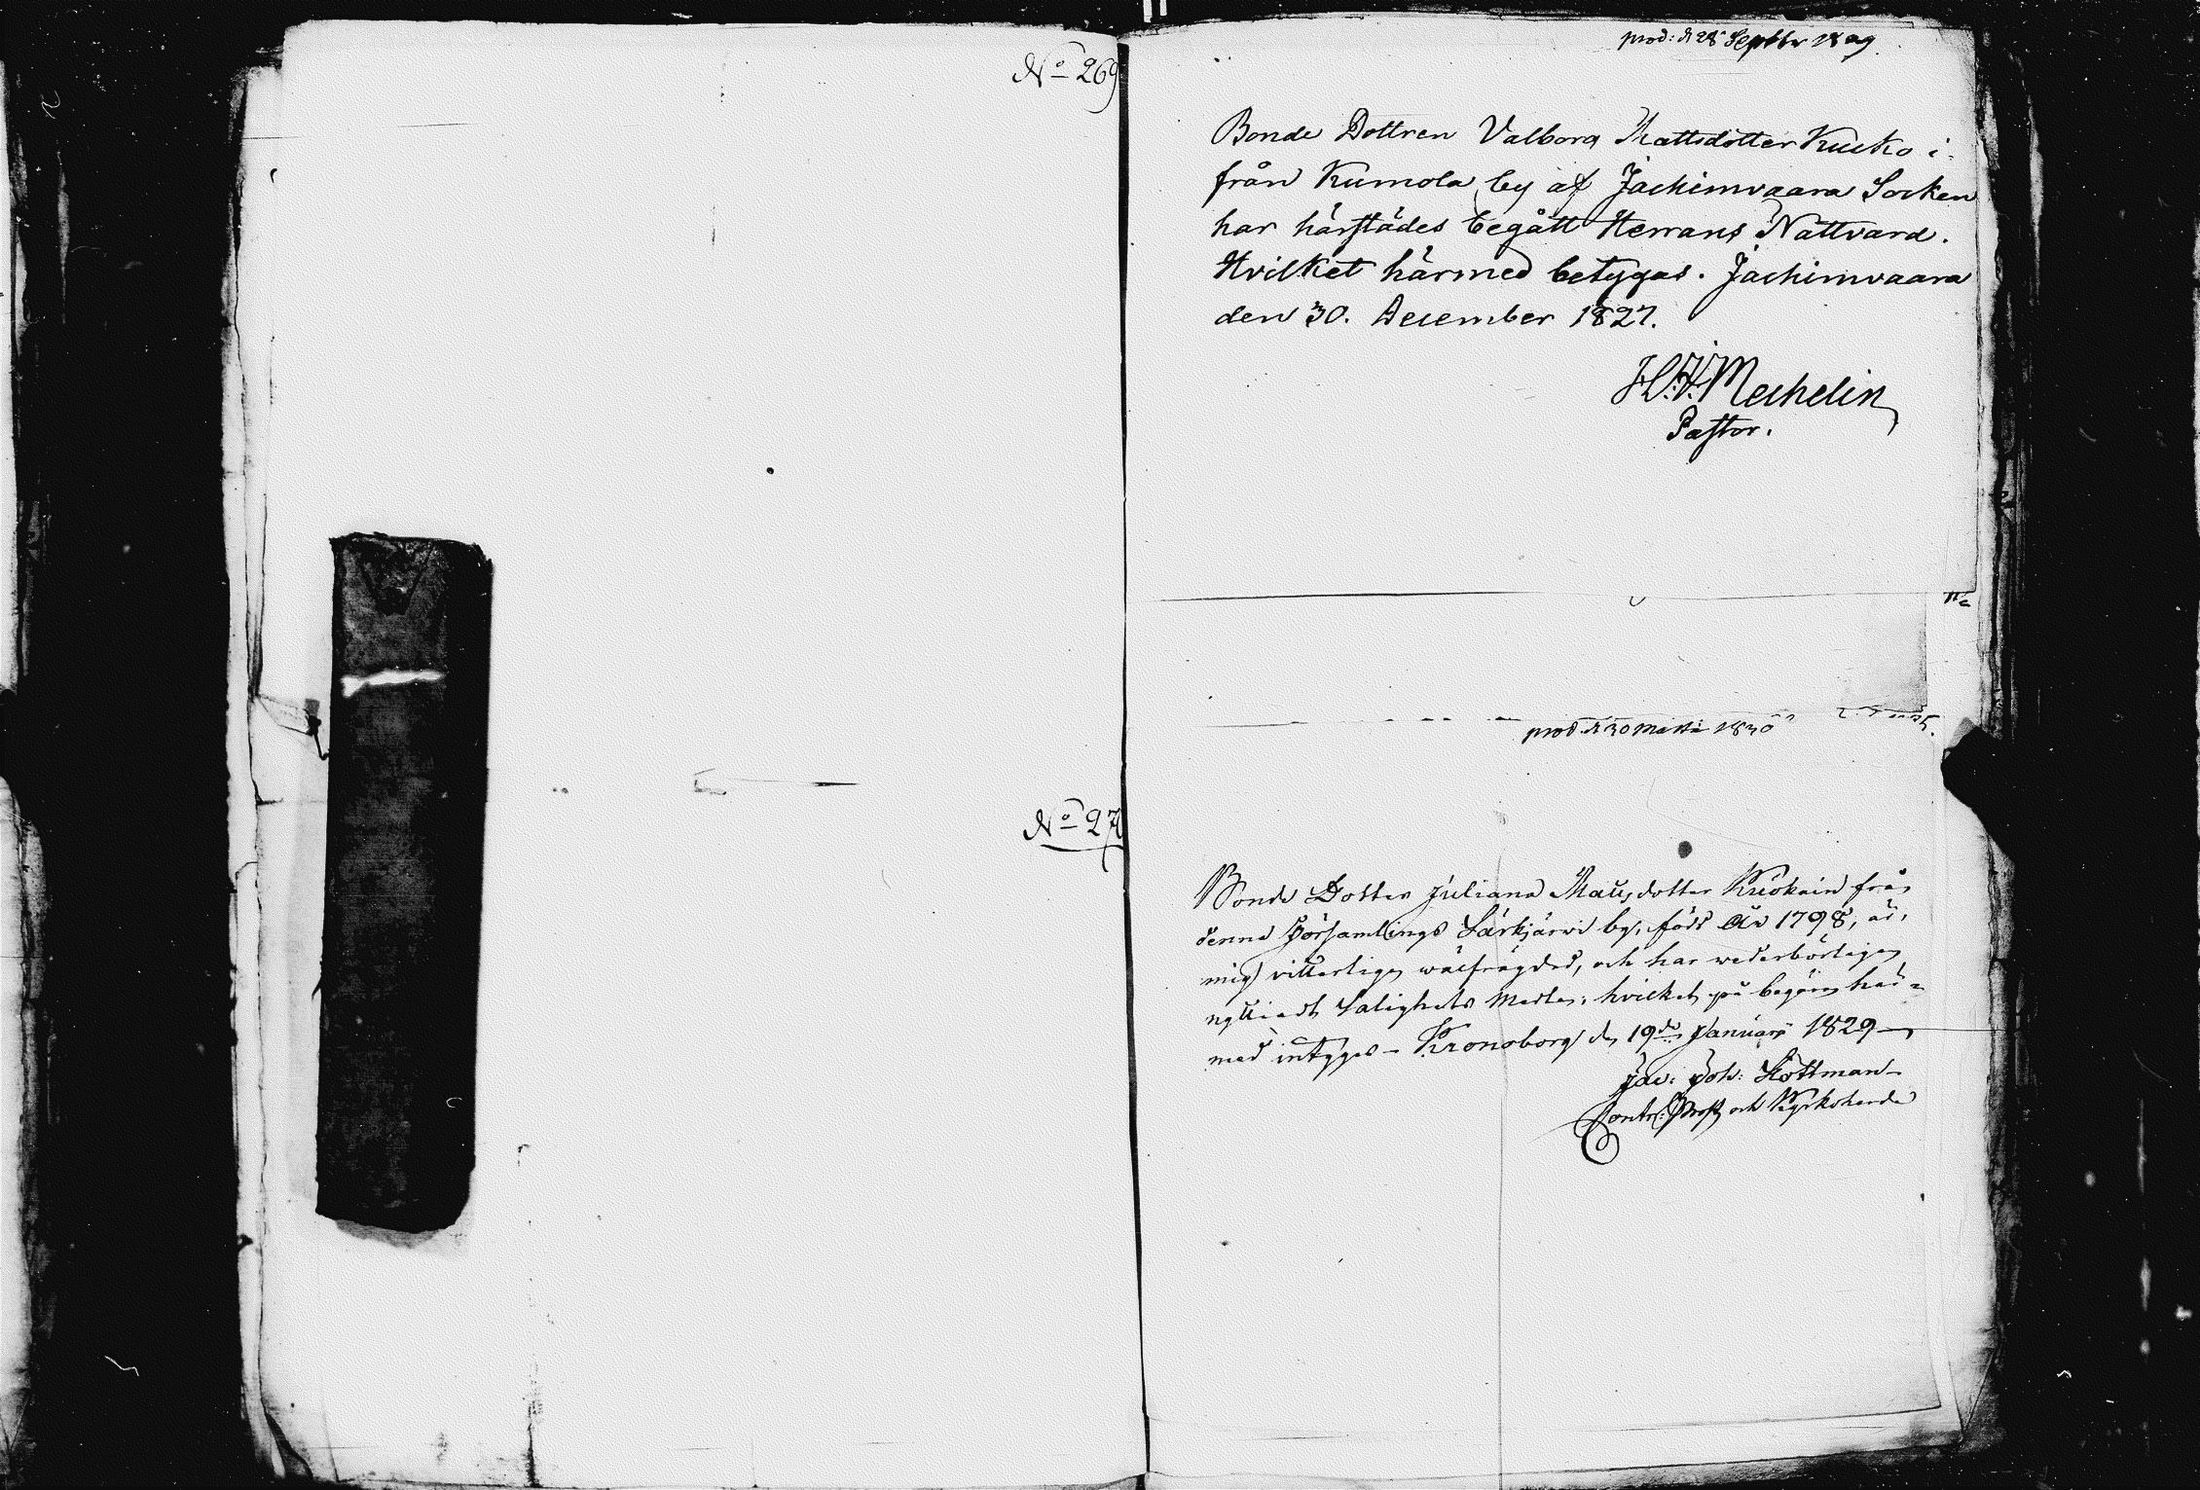 No 269
prod: d 28 Septbr 1829
Bonde Dottren Valborg Mattsdotter Kucko i-
från Kumola by af Jachimvaara Socken
har härstädes begått Herrans Nattvard.
Hvilket härmed betygas. Jachimvaara
den 30. December 1827.
H. H. Mechelin
Pastor.
prod. d 30 Martii 1830
No 270
Bonde Dotter Juliana Matsdotter Kuokain från
denna Församlings Särkjärwi by, född År 1798, är,
mig vitterligen wälfrägdad, och har wederbörligen
nyttjadt Salighets Medlen; hvilket på begäran här-
med intygas – Kronoborg den 19de Januarii 1829 –
Jac: Joh: Hottman –
Contr: Prost och Kyrkoherde